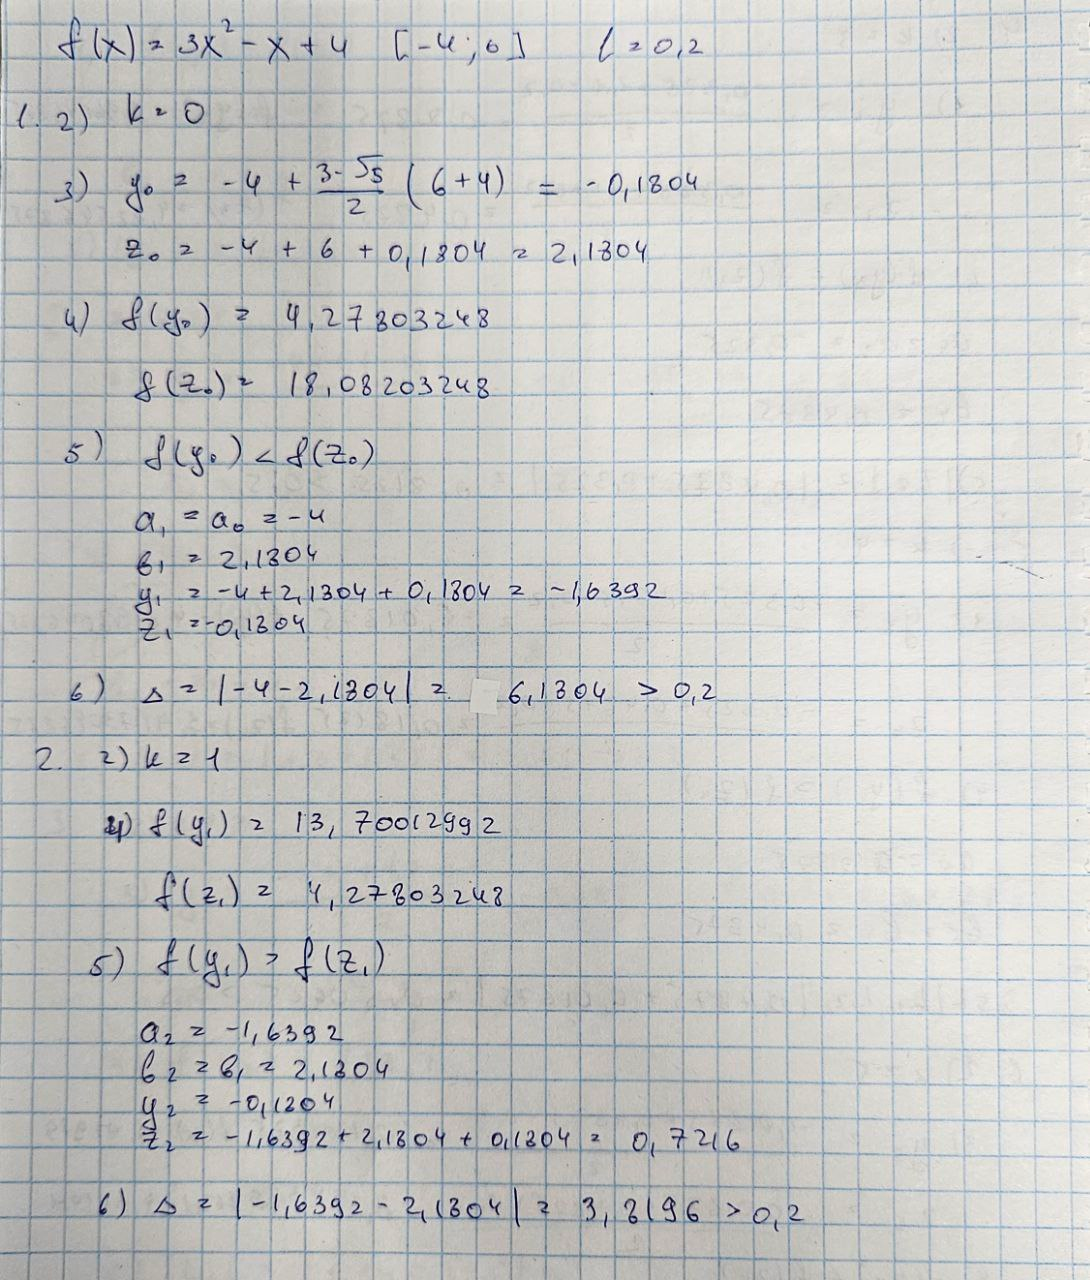 f(x) = 3x² - x + 4 [-4; 6] l = 0,2
1. 2) k = 0
3) y₀ = -4 + (3-√5)/2 (6+4) = -0,1804
z₀ = -4 + 6 + 0,1804 = 2,1804
4) f(y₀) = 4,27803248
f(z₀) = 18,08203248
5) f(y₀) < f(z₀)
a₁ = a₀ = -4
b₁ = 2,1804
y₁ = -4 + 2,1804 + 0,1804 = -1,6392
z₁ = -0,1804
6) Δ = |-4-2,1804| = 6,1804 > 0,2
2. 2) k = 1
4) f(y₁) = 13,70012992
f(z₁) = 4,27803248
5) f(y₁) > f(z₁)
a₂ = -1,6392
b₂ = b₁ = 2,1804
y₂ = -0,1804
z₂ = -1,6392 + 2,1804 + 0,1804 = 0,7216
6) Δ = |-1,6392 - 2,1804| = 3,8196 > 0,2